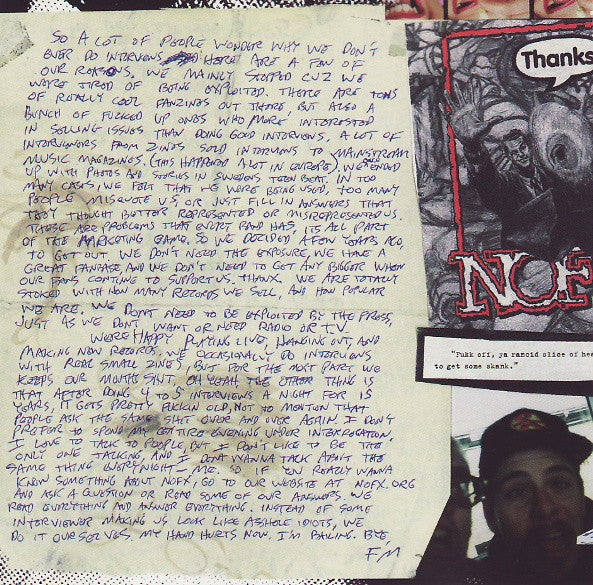 SO A LOT OF PEOPLE WONDER WHY WE DON'T
EVER DO INTERVIEWS. HERE ARE A FEW OF
OUR REASONS. WE MAINLY STOPPED CUZ WE
WERE TIRED OF BEING EXPLOITED. THERE ARE TONS
OF TOTALLY COOL FANZINES OUT THERE, BUT ALSO A
BUNCH OF FUCKED UP ONES WHO MORE INTERESTED
IN SELLING ISSUES THAN DOING GOOD INTERVIEWS. A LOT OF
INTERVIEWERS FROM ZINES SOLD INTERVIEWS TO MAINSTREAM
MUSIC MAGAZINES. (THIS HAPPENED A LOT IN EUROPE). WE ENDED
UP WITH PHOTOS AND STORIES IN SWEDENS TEEN BEAT. IN TOO
MANY CASES, WE FELT THAT WE WERE BEING USED, TOO MANY
PEOPLE MISQUOTE US, OR JUST FILL IN ANSWERS THAT
THEY THOUGHT BETTER REPRESENTED OR MISREPRESENTED US.
THESE ARE PROBLEMS THAT EVERY BAND HAS, ITS ALL PART
OF THE MARKETING GAME. SO WE DECIDED A FEW YEARS AGO,
TO GET OUT. WE DON'T NEED THE EXPOSURE, WE HAVE A
GREAT FANBASE, AND WE DON'T NEED TO GET ANY BIGGER WHEN
OUR FANS CONTINE TO SUPPORT US. THANX. WE ARE TOTALLY
STOKED WITH HOW MANY RECORDS WE SELL, AND HOW POPULAR
WE ARE. WE DON'T NEED TO BE EXPLOITED BY THE PRESS,
JUST AS WE DONT WANT OR NEED RADIO OR T.V.
WERE HAPPY PLAYING LIVE, HANGING OUT, AND
MAKING NEW RECORDS. WE OCCASIONALLY DO INTERVIEWS
WITH REAL SMALL ZINES, BUT FOR THE MOST PART WE
KEEPS OUR MOUTHS SHUT. OH YEAH THE OTHER THING IS
THAT AFTER DOING 4 TO 5 INTERVIEWS A NIGHT FOR 15
YEARS, IT GETS PRETTY FUCKIN OLD, NOT TO MENTION THAT
PEOPLE ASK THE SAME SHIT OVER AND OVER AGAIN. I DON'T
PREFER TO SPEND MY ENTIRE EVENING UNDER INTERROGATION.
I LOVE TO TALK TO PEOPLE, BUT I DON'T LIKE TO BE THE
ONLY ONE TALKING, AND I DONT WANNA TALK ABOUT THE
SAME THING EVERY NIGHT - ME. SO IF YOU REALLY WANNA
KNOW SOMETHING ABOUT NOFX, GO TO OUR WEBSITE AT NOFX.ORG
AND ASK A QUESTION OR READ SOME OF OUR ANSWERS. WE
READ EVERYTHING AND ANSWER EVERYTHING. INSTEAD OF SOME
INTERVIEWER MAKING US LOOK LIKE ASSHOLE IDIOTS, WE
DO IT OURSELVES. MY HAND HURTS NOW. I'M BAILING. BYE,
FM
Thanks
NOF
"Fukk off, ya rancid slice of
to get some skank."